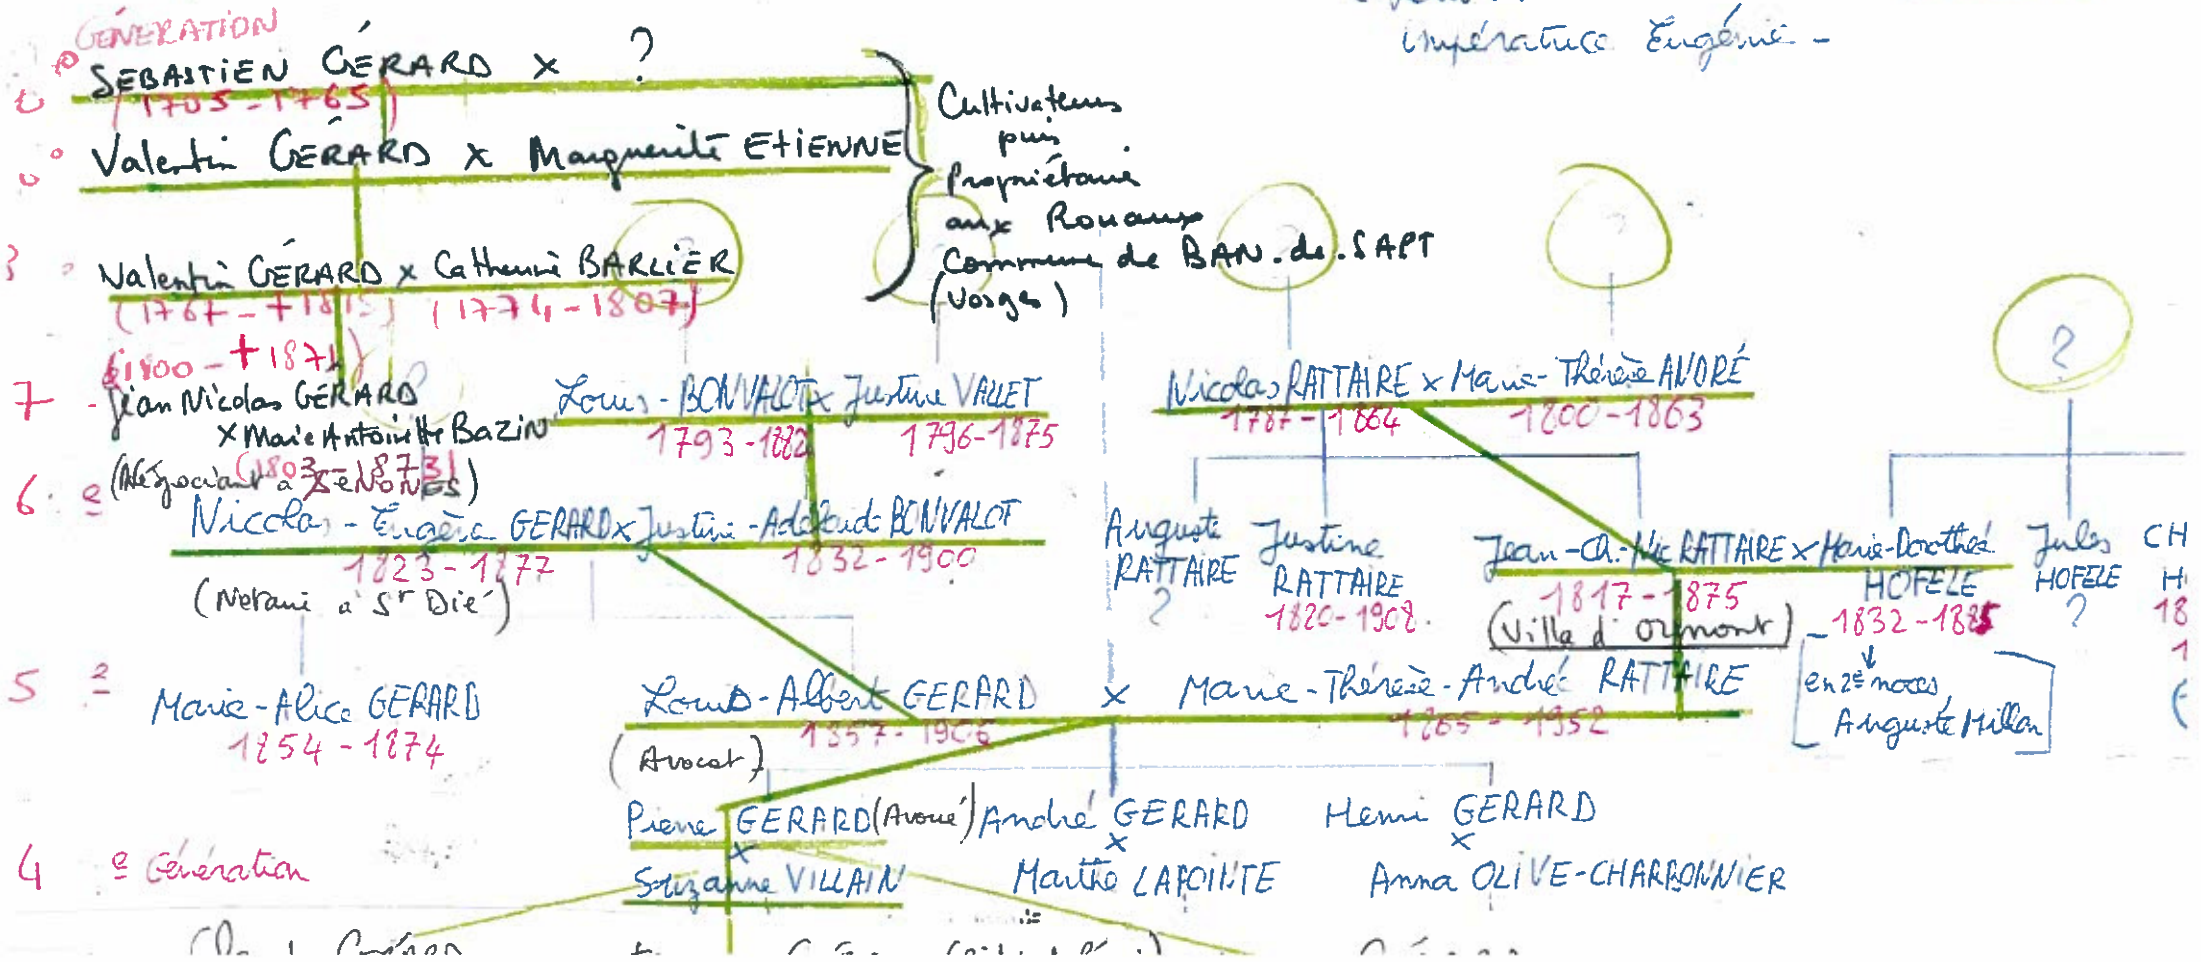 GÉNÉRATION
impératrice Eugénie -
SEBASTIEN GÉRARD x ?
(1705-1765)
Valentin GÉRARD x Marguerite ETIENNE
Cultivateurs
puis
Propriétaires
aux Rouaux
Commune de BAN. de. SAPT
(Vosges)
Valentin GÉRARD x Catherine BARLIER
(1774-1807)
?
7
Jean Nicolas GÉRARD
x Marie Antoinette BAZIN
Louis - BONVALOT x Justine VALLET
1793-1882 1796-1875
Nicolas RATTAIRE x Marie-Thérèse ANDRÉ
1787-1864 1800-1863
(Négociant à SENONES)
6 e
Nicolas - Eugène GERARD x Justine-Adélaude BONVALOT
1823-1877 1832-1900
(Notaire à St Dié)
Auguste
RATTAIRE
?
Justine
RATTAIRE
1820-1908.
Jean-Ch.-Nic RATTAIRE x Marie-Dorothée
HOFELE
1817-1875
1832-1885
(Villa d'Ormont)
Jules
HOFELE
?
CH
H
18
1
(
en 2e noces,
Auguste Millon
5 e
Marie-Alice GERARD
1854-1874
Louis-Albert GERARD x Marie-Thérèse-André RATTAIRE
1857-1906 1865-1952
(Avocat)
Pierre GERARD (Avoué) André GERARD Henri GERARD
x x x
Suzanne VILLAIN Marthe LAPOINTE Anna OLIVE-CHARBONNIER
4 e Génération